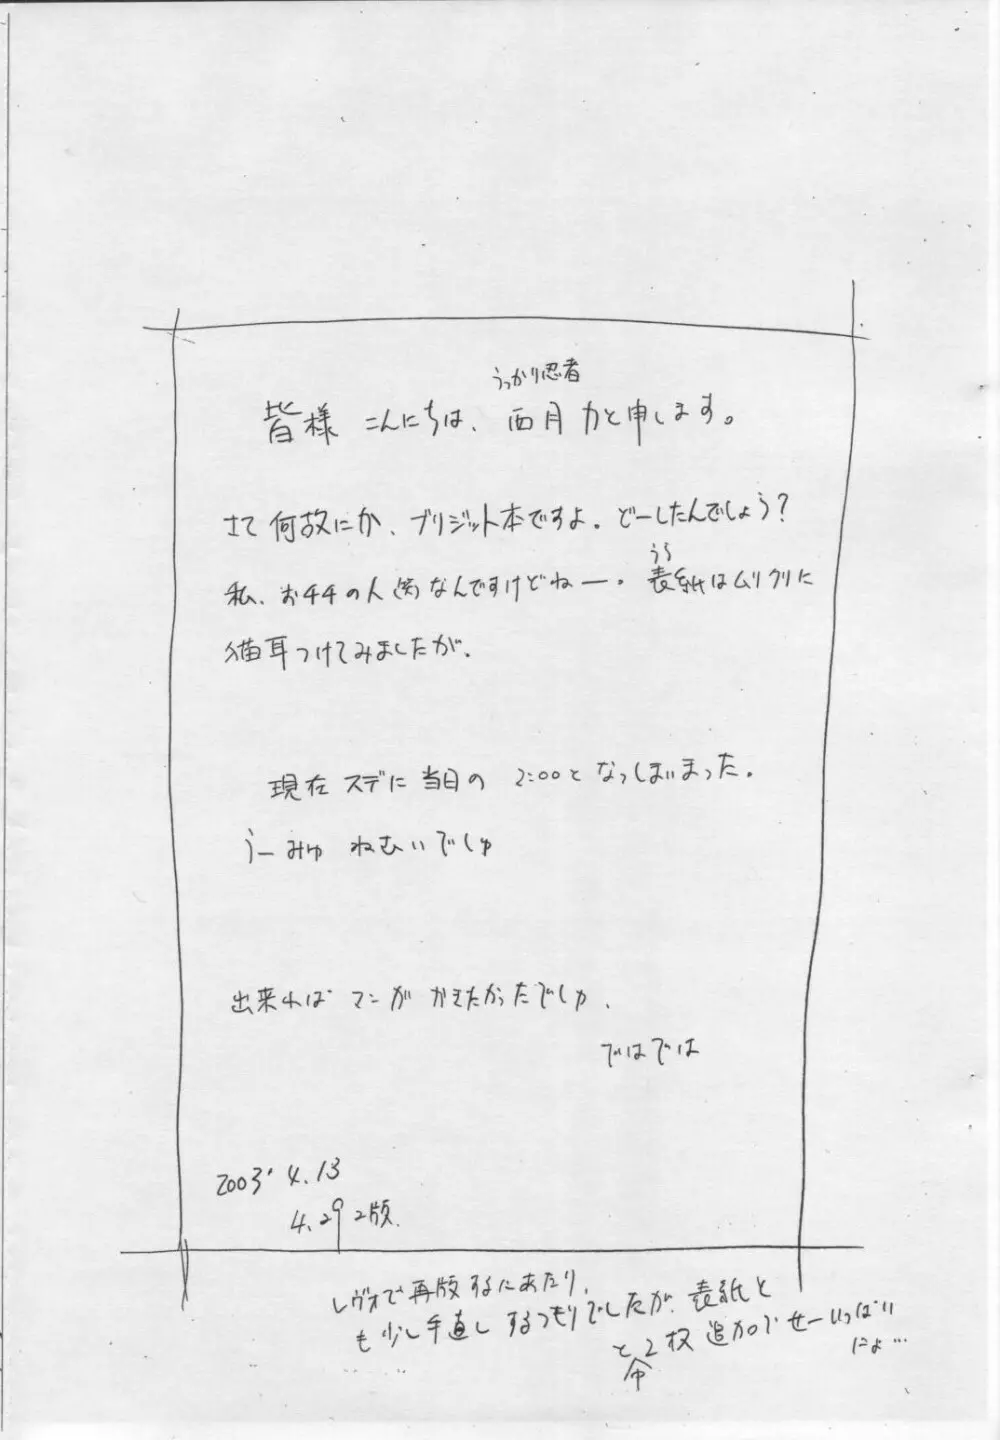 うっかり忍者
皆様 こんにちは、西月力と申します。
さて何故にか、ブリジット本ですよ。どーしたんでしょう?
うら
私、お千千の人(笑)なんですけどねー。表紙はムリクリに
猫耳つけてみましたが。
現在スデに当日の 2:00となっしまいまった。
うーみゅ ねむいでしゅ
出来れば マンガ かきたかったでしゅ、
ではでは
2003' 4.13
4.29 2版.
レヴォで再版するにあたり、
も少し手直しするつもりでしたが、表紙と
と2枚 追加で せーいっぱい
にょ…